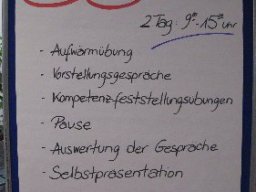 2 Tag: 9⁰⁰-15⁰⁰ Uhr
- Aufwärmübung
- Vorstellungsgespräche
- Kompetenzfeststellungsübungen
- Pause
- Auswertung der Gespräche
- Selbstpräsentation